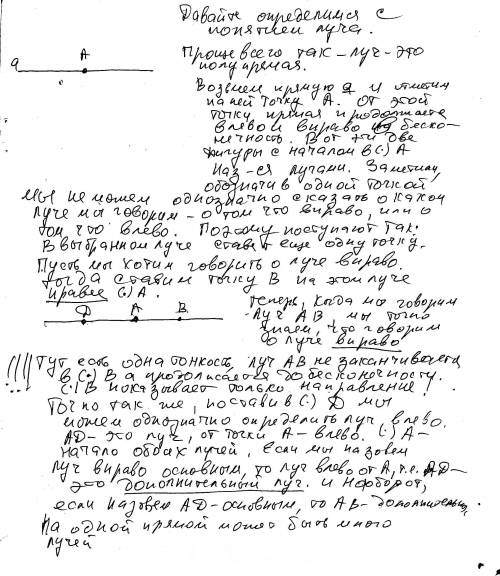 Давайте определимся с
понятием луча.
A
a
Проще всего так - луч - это
полупрямая.
Возьмем прямую a и отметим
на ней точку A. От этой
точки прямая продолжается
влево и вправо беско-
нечность. Вот эти две
фигуры с началом в (·) A
наз-ся лучами. Заметим,
обозначив одной точкой,
мы не можем однозначно сказать о каком
луче мы говорим - о том что вправо, или о
том что влево. Поэтому поступают так.
В выбранном луче ставят еще одну точку.
Пусть мы хотим говорить о луче вправо.
Тогда ставим точку B на этом луче
правее (·) A.
D A B
Теперь, когда мы говорим
луч AB, мы точно
знаем, что говорим
о луче вправо
!!!! Тут есть одна тонкость, луч AB не заканчивается
в (·) B а продолжается до бесконечности.
(·) B показывает только направление!
Точно так же, поставив (·) D мы
можем однозначно определить луч влево.
AD - это луч, от точки A - влево. (·) A -
начало обоих лучей, если мы назовем
луч вправо основным, то луч влево от A, т.е. AD -
это дополнительный луч. и наоборот,
если назовем AD - основным, то AB - дополнительн.
На одной прямой может быть много
лучей